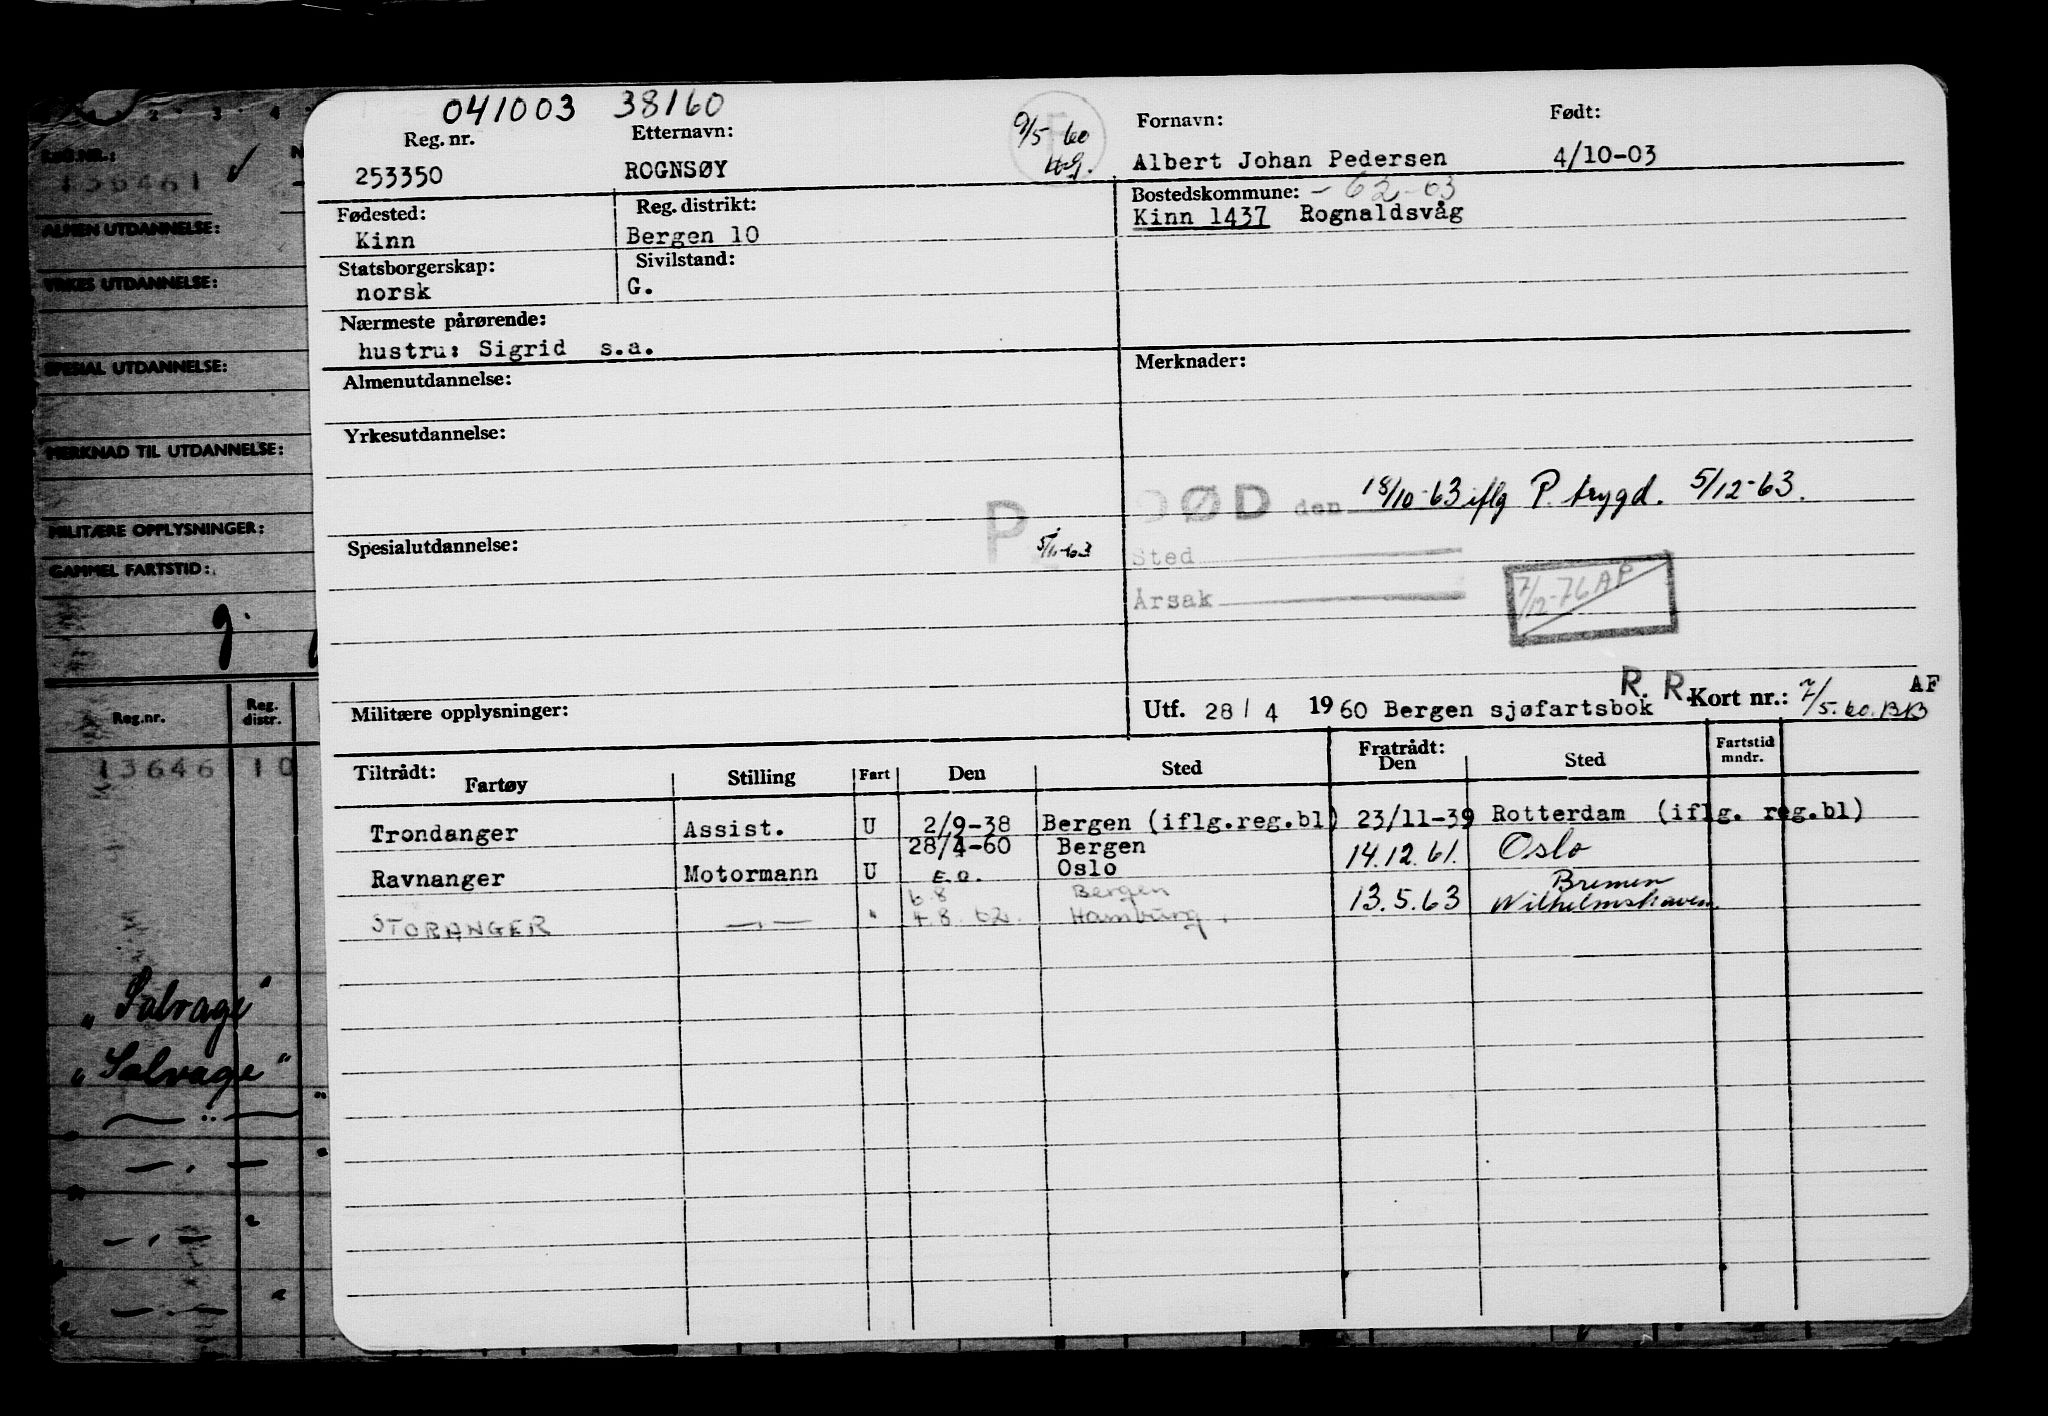 041003 38160
Reg. nr. Etternavn: 9/5 60 Fornavn: Født:
253350 ROGNSØY Albert Johan Pedersen 4/10-03
Fødested: Reg. distrikt: Bostedskommune: -62-63
Kinn Bergen 10 Kinn 1437 Rognaldsvåg
Statsborgerskap: Sivilstand:
norsk G.
Nærmeste pårørende:
hustru: Sigrid s.a.
Almenutdannelse: Merknader:
Yrkesutdannelse:
DØD den 18/10-63 iflg P. trygd. 5/12-63.
Spesialutdannelse: P Sted
Årsak 7/12-76 AP
R. R. AF
Militære opplysninger: Utf. 28 / 4 1960 Bergen sjøfartsbok Kort nr.: 7/5.60. BB
Tiltrådt: Fartøy Stilling Fart Den Sted Fratrådt: Den Sted Fartstid mndr.
Trondanger Assist. U 2/9-38 Bergen (iflg.reg.bl) 23/11-39 Rotterdam (iflg. reg.bl)
28/4-60 Bergen 14.12.61. Oslo
Ravnanger Motormann U E.O. Oslo
6.8 Bergen 13.5.63 Bremen
STORANGER —"— " 4.8.62. Hamburg. Wilhelmshaven
REG.NR.:
136461
ALMEN UTDANNELSE:
YRKES UTDANNELSE:
SPESIAL UTDANNELSE:
MERKNAD TIL UTDANNELSE:
MILITÆRE OPPLYSNINGER:
GAMMEL FARTSTID:
g.
Reg.nr. Reg. distr.
13646 10
"Salvage"
"Salvage"